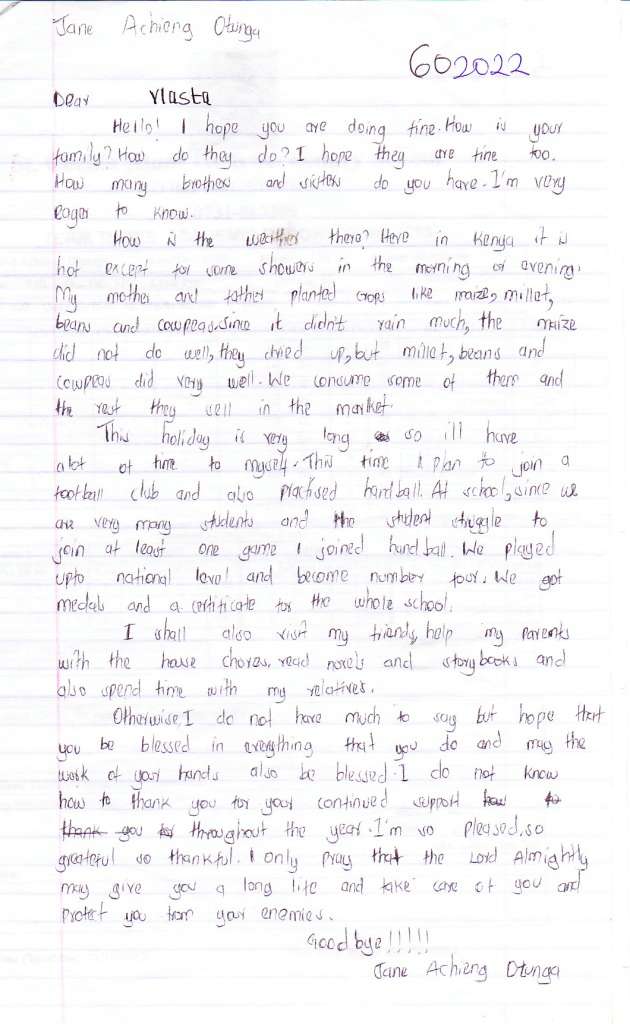 Jane Achieng Otunga
602022
Dear Vlasta
Hello! I hope you are doing fine. How is your
family? How do they do? I hope they are fine too.
How many brothers and sisters do you have. I'm very
Eager to know.
How is the weather there? Here in Kenya it is
hot except for some showers in the morning or evening.
My mother and father planted crops like maize, millet,
beans and cowpeas. Since it didn't rain much, the maize
did not do well, they dried up, but millet, beans and
cowpeas did very well. We consume some of them and
the rest they sell in the market.
This holiday is very long so ill have
a lot of time to myself. This time I plan to join a
football club and also practised handball. At school, since we
are very many students and the student struggle to
join at least one game I joined handball. We played
upto national level and become number four. We got
medals and a certificate for the whole school.
I shall also visit my friends, help my parents
with the house chores, read novels and storybooks and
also spend time with my relatives.
Otherwise, I do not have much to say but hope that
you be blessed in everything that you do and may the
work of your hands also be blessed. I do not know
how to thank you for your continued support how to
thank you for throughout the year. I'm so pleased, so
greateful so thankful. I only pray that the Lord Almightly
may give you a long life and take care of you and
protect you from your enemies.
Good bye!!!!!
Jane Achieng Otunga